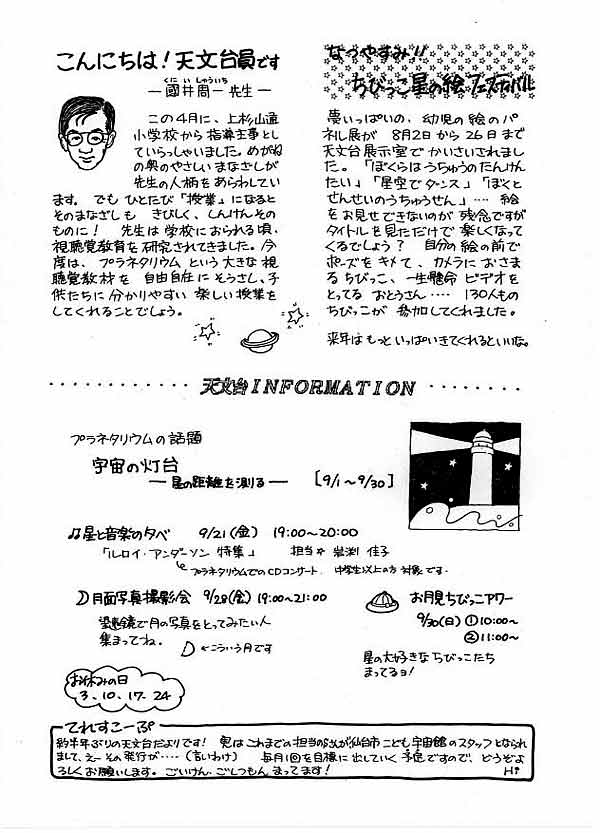 こんにちは！天文台員です
くにい しゅういち
―國井周一 先生―
この４月に、上杉山通
小学校から指導主事とし
ていらっしゃいました。めがね
の奥のやさしいまなざしが
先生の人柄をあらわしてい
ます。でもひとたび「授業」になると
そのまなざしも きびしく、しんけんその
ものに！ 先生は学校におられる頃、
視聴覚教育を研究されてきました。今
度は、プラネタリウムという大きな視
聴覚教材を 自由自在にそうさし、子
供たちに分かりやすい 楽しい授業を
してくれることでしょう。
なつやすみ!!
ちびっこ星の絵フェスティバル
夢いっぱいの、幼児の絵のパ
ネル展が 8月2日から26日まで
天文台展示室でかいさいされまし
た。「ぼくらはうちゅうのたんけん
たい」「星空でダンス」「ぼくと
せんせいのうちゅうせん」‥‥ 絵
をお見せできないのが 残念ですが
タイトルを見ただけで 楽しくなって
くるでしょう？ 自分の絵の前で
ポーズをキメて、カメラにおさま
るちびっこ、一生懸命 ビデオを
とってる おとうさん‥‥ 130人もの
ちびっこが 参加してくれました。
来年は もっと いっぱいきてくれるといいな。
天文台INFORMATION
プラネタリウムの話題
宇宙の灯台
―星の距離を測る― [9/1～9/30]
♫星と音楽の夕べ 9/21(金) 19:00～20:00
「ルロイ・アンダーソン 特集」 担当☆ 岩渕 佳子
プラネタリウムでのCDコンサート. 中学生以上の方 対象です.
月面写真撮影会 9/28(金) 19:00～21:00
望遠鏡で月の写真をとってみたい人
集まってね。
←こういう月です
お月見ちびっこアワー
9/30(日) ①10:00～
②11:00～
星の大好きな ちびっこたち
まってるョ!
お休みの日
3. 10. 17. 24
てれすこーぷ
約半年ぶりの天文台だよりです! 実はこれまでの担当のSさんが仙台市こども宇宙館のスタッフとなられ
まして、えー その発行が‥‥ (言いわけ) 毎月1回を目標に出していく予定ですので、どうぞよ
ろしくお願いします。ごいけん、ごしつもん まってます! Hi